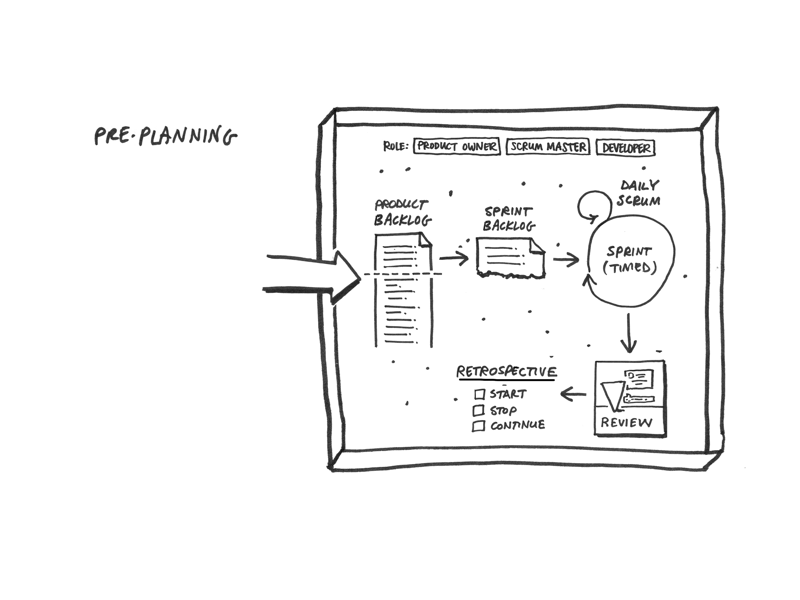 PRE-PLANNING
ROLE: PRODUCT OWNER SCRUM MASTER DEVELOPER
PRODUCT
BACKLOG
SPRINT
BACKLOG
DAILY
SCRUM
SPRINT
(TIMED)
RETROSPECTIVE
START
STOP
CONTINUE
REVIEW